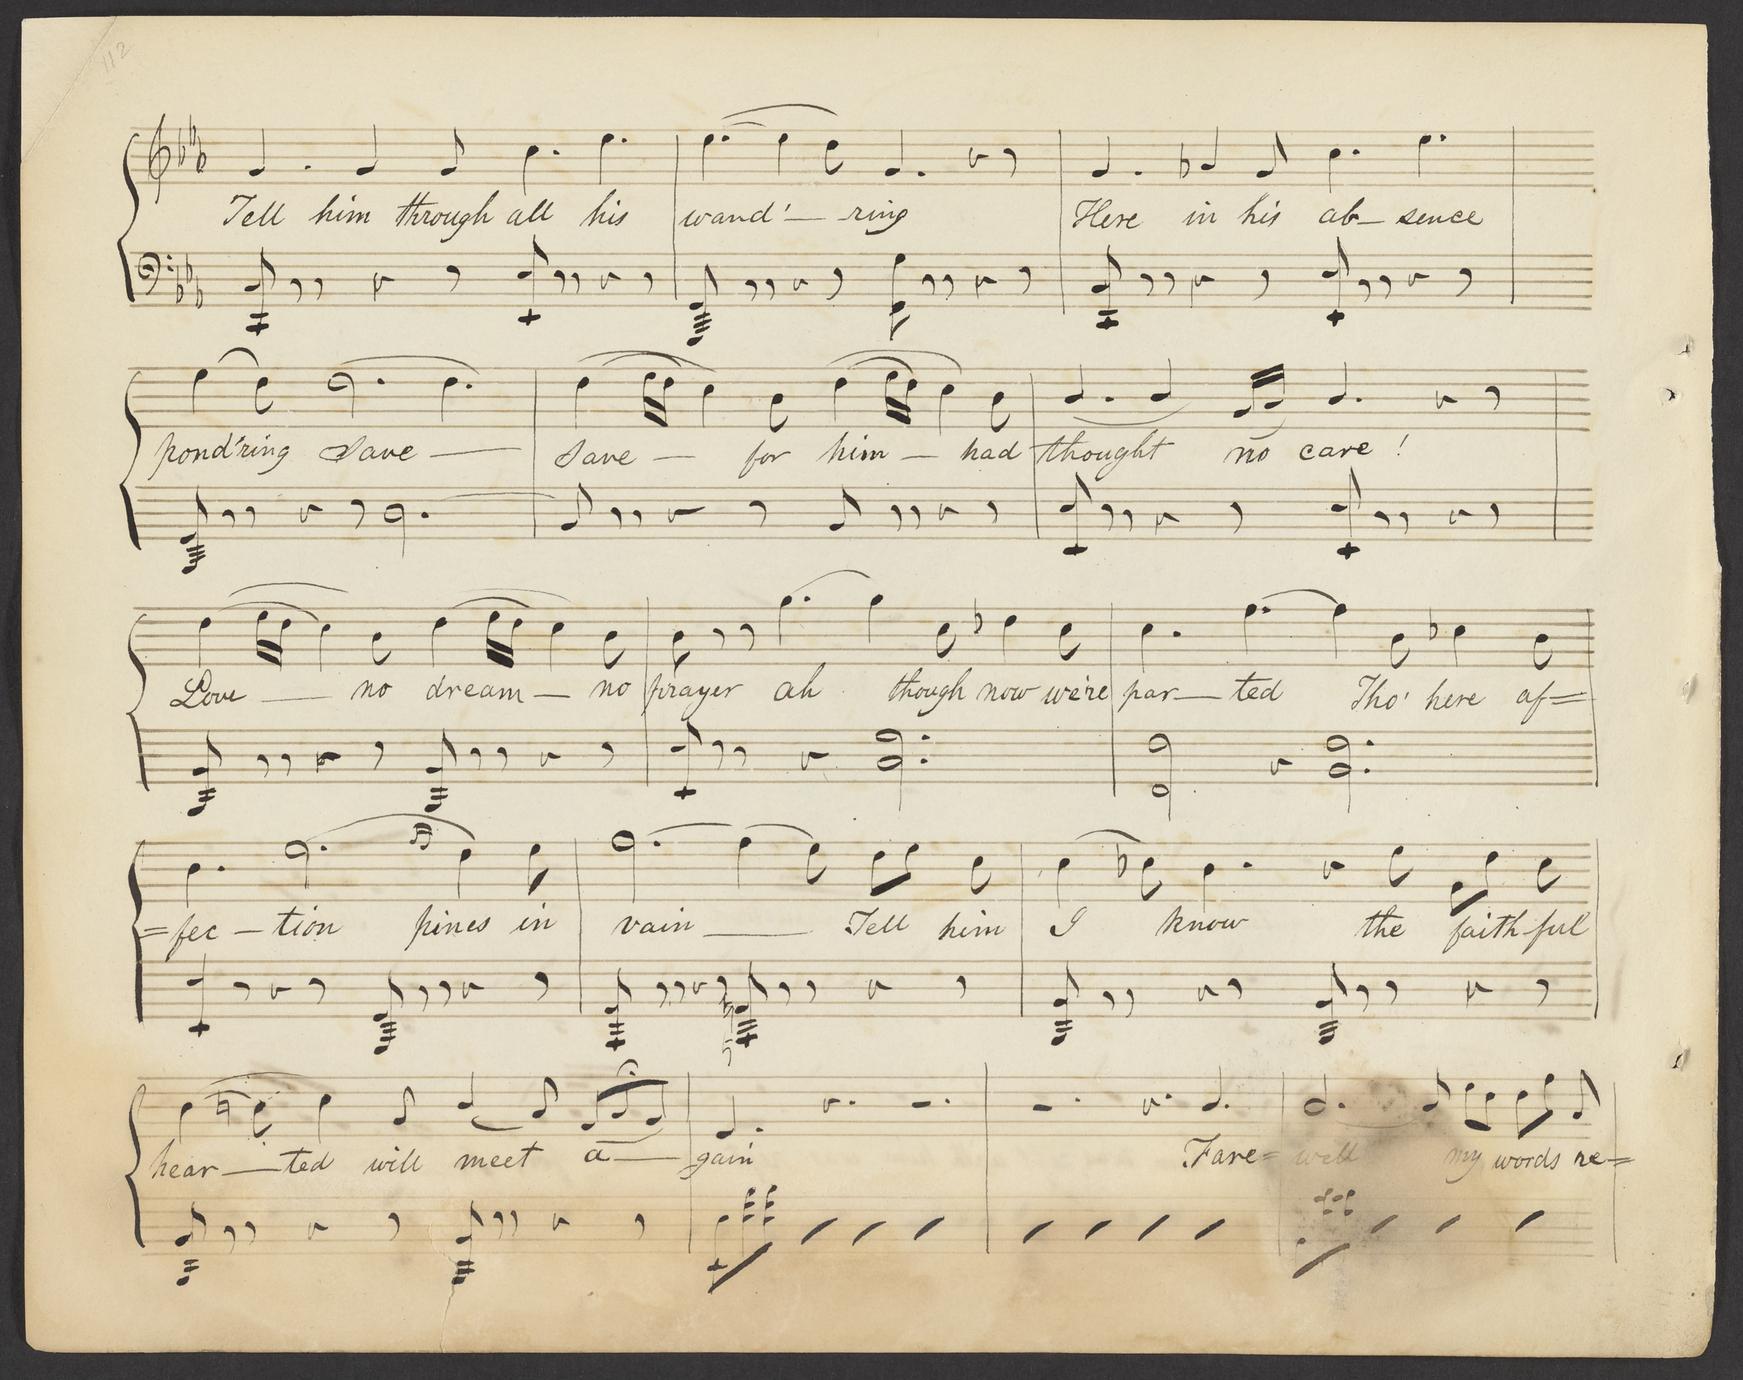 112
Tell him through all his wand'— ring Here in his ab— sence
pond'ring Save — Save — for him — had thought no care !
Love — no dream — no prayer ah though now we're par— ted Tho' here af=
=fec — tion pines in vain — Tell him I know the faith ful
hear — ted will meet a — gain Fare= well my words re=